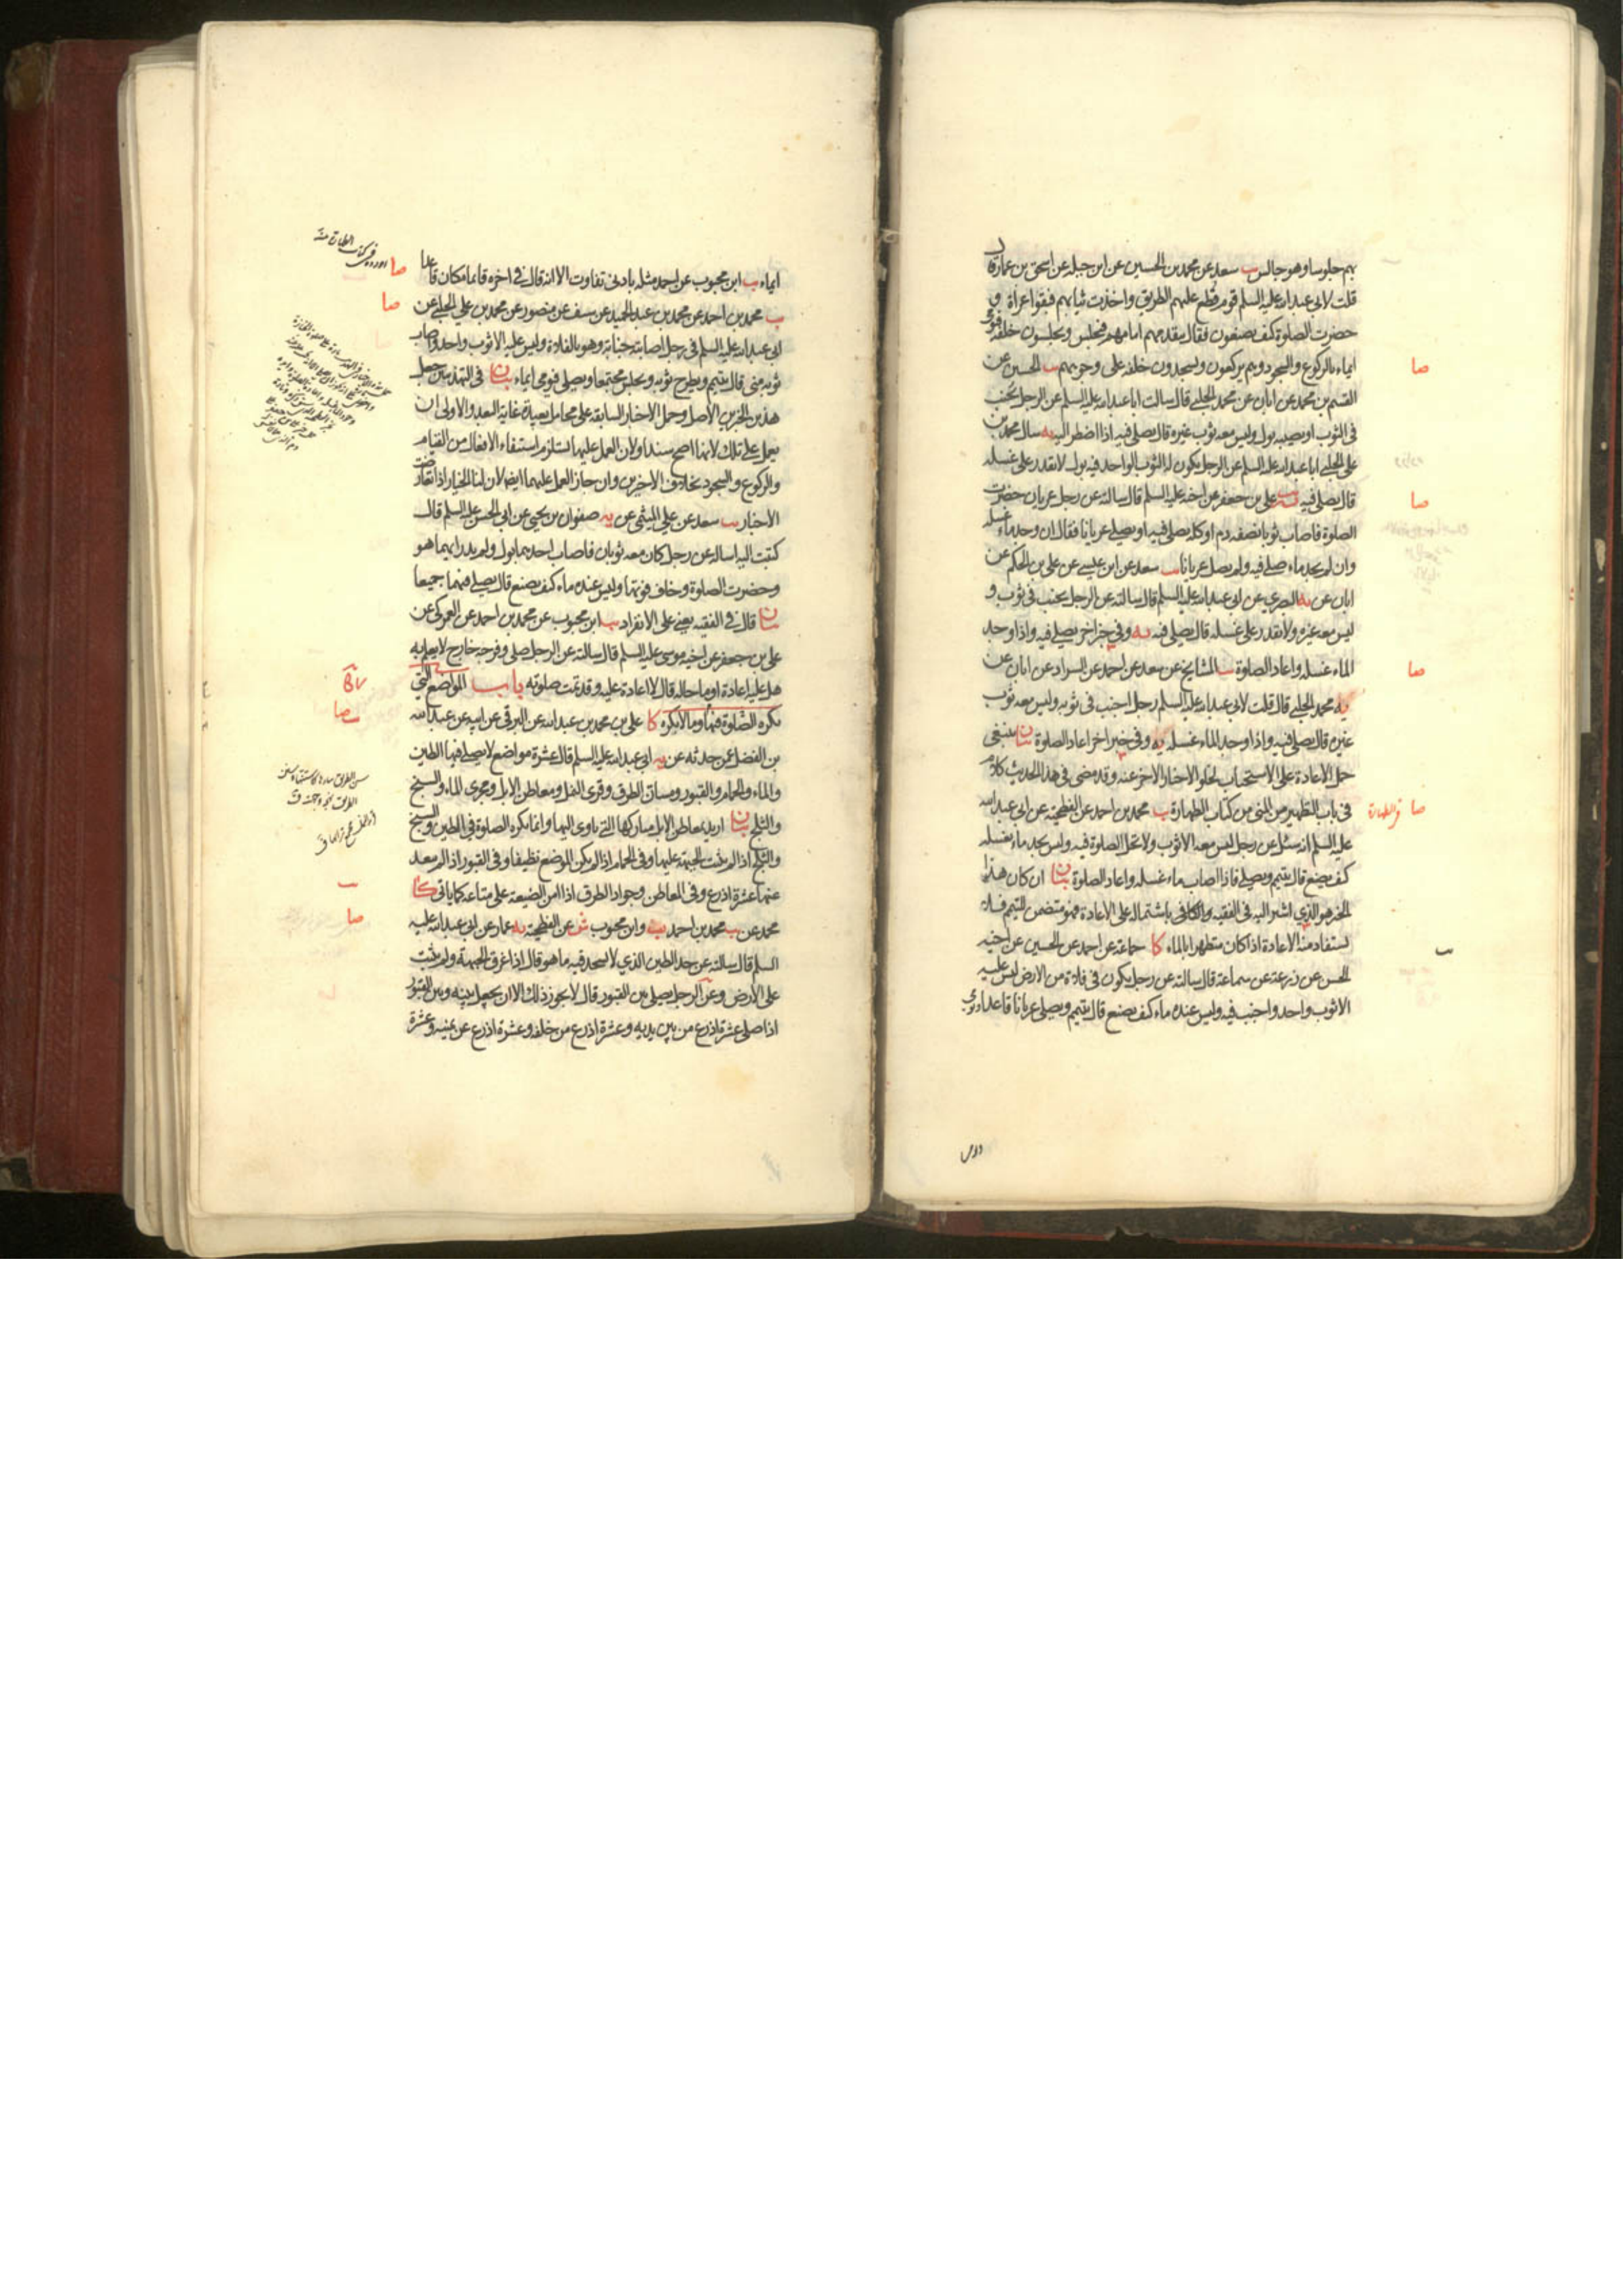 بهم جلوسا وهو جالس يب سعد عن محمد بن الحسين عن ابن جبله عن اسحق بن عمار قال
قلت لابى عبدالله عليه السلم قوم قطع عليهم الطريق واخذت ثيابهم فبقوا عراة و
حضرت الصلوة كيف يصنعون فقال يتقدمهم امامهم فيجلس ويجلسون خلفه فيومى
ايماء بالركوع والسجود وهم يركعون ويسجدون خلفه على وجوههم يب الحسين عن
القسم بن محمد عن ابان عن محمد الحلبى قال سالت ابا عبدالله عليه السلم عن الرجل يجنب
فى الثوب او يصيبه بول وليس معه ثوب غيره قال يصلى فيه اذا اضطر اليه يه سال محمد بن
على الحلبى ابا عبدالله عليه السلم عن الرجل يكون له الثوب الواحد فيه بول لا يقدر على غسله
قال يصلى فيه يه يب على بن جعفر عن اخيه عليه السلم قال سالته عن رجل عريان حضرت
الصلوة فاصاب ثوبا نصفه دم او كله يصلى فيه او يصلى عريانا فقال ان وجد ماء غسله
وان لم يجد ماء صلى فيه ولم يصل عريانا يب سعد عن ابن عيسى عن على بن الحكم عن
ابان عن يه البصرى عن ابى عبدالله عليه السلم قال سالته عن الرجل يجنب فى ثوب و
ليس معه غيره ولا يقدر على غسله قال يصلى فيه يه وفى خبر اخر يصلى فيه واذا وجد
الماء غسله واعاد الصلوة يب المشايخ عن سعد عن احمد عن السراد عن ابان عن
يه محمد الحلبى قال قلت لابى عبدالله عليه السلم رجل اجنب فى ثوبه وليس معه ثوب
غيره قال يصلى فيه واذا وجد الماء غسله يه وفى خبر اخر اعاد الصلوة بيان ينبغى
حمل الاعادة على الاستحباب لخلو الاخبار الاخر عنه وقد مضى فى هذا الحديث كلام
فى باب التطهير من المنى من كتاب الطهارة يب محمد بن احمد عن الفطحية عن ابى عبدالله
عليه السلم انه سئل عن رجل ليس معه الا ثوب ولا تحل الصلوة فيه وليس يجد ماء يغسله
كيف يصنع قال يتيمم ويصلى فاذا اصاب ماء غسله واعاد الصلوة بيان ان كان هذا
الخبر هو الذى اشير اليه فى الفقيه والكافى باشتماله على الاعادة فهو متضمن للتيمم فلا
يستفاد منه الاعادة اذا كان متطهرا بالماء كا جماعة عن احمد عن الحسين عن اخيه
الحسن عن زرعة عن سماعة قال سالته عن رجل يكون فى فلاة من الارض ليس عليه
الا ثوب واحد واجنب فيه وليس عنده ماء كيف يصنع قال يتيمم ويصلى عريانا قاعدا ويومى
صا
صا
صا
صا
ايماء يب ابن محبوب عن احمد مثله بادنى تفاوت الا انه قال فى اخره قائما مكان قاعدا
يب محمد بن احمد عن محمد بن عبد الحميد عن سيف عن منصور عن محمد بن على الحلبى عن
ابى عبدالله عليه السلم فى رجل اصابته جنابة وهو بالفلاة وليس عليه الا ثوب واحد واصاب
ثوبه منى قال يتيمم ويطرح ثوبه ويجلس مجتمعا ويصلى فيومى ايماء بيان فى التهذيبين جعل
هذين الخبرين الاصل وحمل الاخبار السابقة على محامل بعيدة غاية البعد والاولى ان
يعمل على تلك لانها اصح سندا ولان العمل عليها استلزم استيفاء الافعال من القيام
والركوع والسجود بخلاف الاخيرين وان جاز العمل عليهما ايضا لان لنا الخيار اذا تعارضت
الاخبار يب سعد عن على الميثمى عن يه صفوان بن يحيى عن ابى الحسن عليه السلم قال
كتبت اليه اساله عن رجل كان معه ثوبان فاصاب احدهما بول ولم يدر ايهما هو
وحضرت الصلوة وخاف فوتها وليس عنده ماء كيف يصنع قال يصلى فيهما جميعا
بيان قال فى الفقيه يعنى على الانفراد يب ابن محبوب عن محمد بن احمد عن العمركى عن
على بن جعفر عن اخيه موسى عليه السلم قال سالته عن الرجل صلى وفرجه خارج لا يعلم به
هل عليه اعادة او ما حاله قال لا اعادة عليه وقد تمت صلوته باب المواضع التى
يكره الصلوة فيها وما لا يكره كا على بن محمد بن عبدالله عن البرقى عن ابيه عن عبدالله
بن الفضل عمن حدثه عن يه ابى عبدالله عليه السلم قال عشرة مواضع لا يصلى فيها الطين
والماء والحمام والقبور ومسان الطرق وقرى النمل ومعاطن الابل ومجرى الماء والسبخ
والثلج بيان اريد بمعاطن الابل مباركها التى ياوى اليها وانما يكره الصلوة فى الطين والسبخ
والثلج اذا لم يثبت الجبهة عليها وفى الحمام اذا لم يكن الموضع نظيفا وفى القبور اذا لم يبعد
عنها عشرة اذرع وفى المعاطن وجواد الطرق اذا امن الضيعة على متاعه كما ياتى كا
محمد عن يب محمد بن احمد يب وابن محبوب ش عن الفطحية يه عمار عن ابى عبدالله عليه
السلم قال سالته عن حد الطين الذى لا يسجد فيه ما هو قال اذا غرق الجبهة ولم يثبت
على الارض وعن الرجل يصلى بين القبور قال لا يجوز ذلك الا ان يجعل بينه وبين القبور
اذا صلى عشرة اذرع من بين يديه وعشرة اذرع من خلفه وعشرة اذرع عن يمينه وعشرة
صا
صا
صا